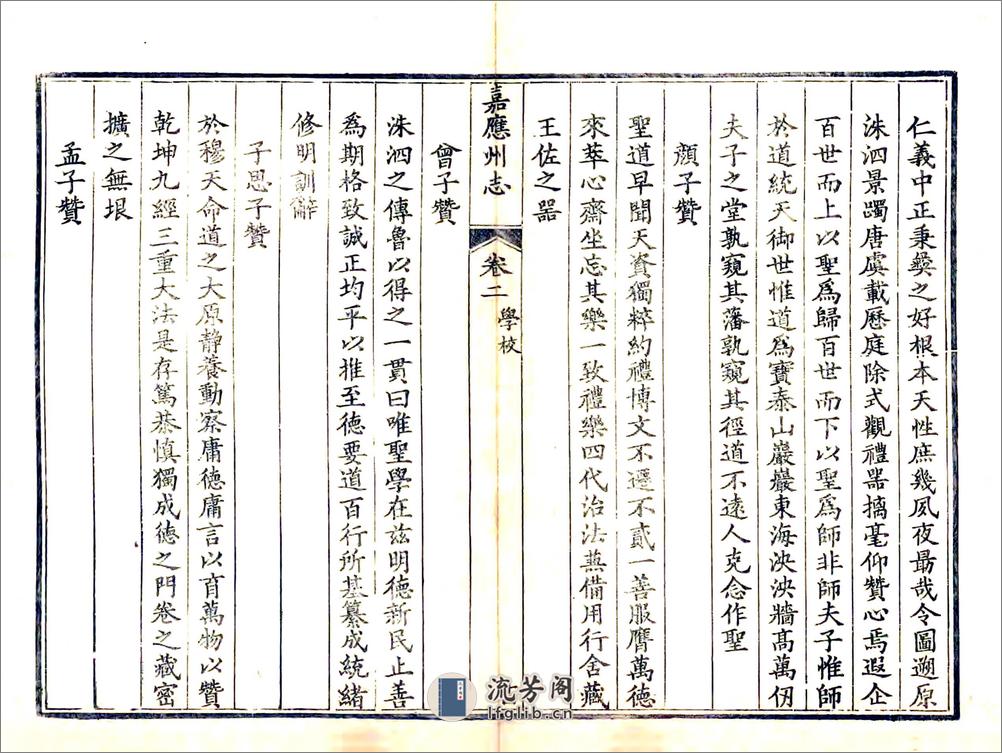 仁義中正秉彝之好根本天性庶幾夙夜勗哉令圖遡原
洙泗景躅唐虞載歷庭除式觀禮器摛毫仰贊心焉遐企
百世而上以聖爲歸百世而下以聖爲師非師夫子惟師
於道統天御世惟道爲寶泰山巖巖東海泱泱牆高萬仞
夫子之堂孰窺其藩孰窺其徑道不遠人克念作聖
顏子贊
聖道早聞天資獨粹約禮博文不遷不貳一善服膺萬德
來萃心齋坐忘其樂一致禮樂四代治法兼備用行舍藏
王佐之器
嘉應州志
卷二
學校
曾子贊
洙泗之傳魯以得之一貫曰唯聖學在兹明德新民止善
爲期格致誠正均平以推至德要道百行所基纂成統緒
修明訓辭
子思子贊
於穆天命道之大原静養動察庸德庸言以育萬物以贊
乾坤九經三重大法是存篤恭慎獨成德之門卷之藏密
擴之無垠
孟子贊
流芳阁
lfglib.cn